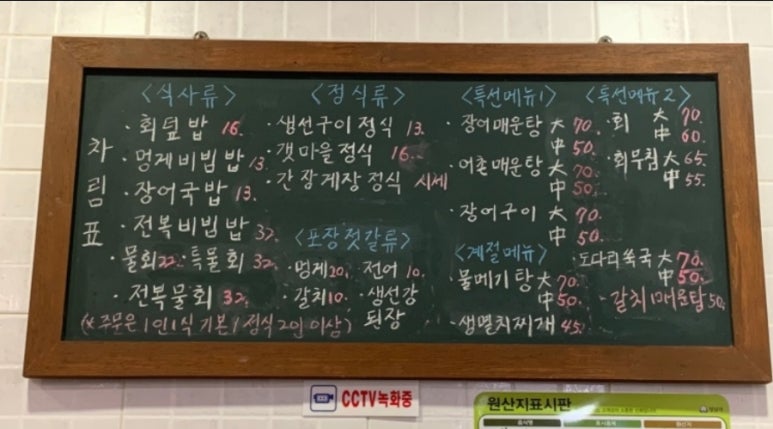 차림표
<식사류>
· 회덮밥 16.
· 멍게비빔밥 13.
· 장어국밥 13.
· 전복비빔밥 32.
· 물회 22. 특물회 32.
· 전복물회 32.
(※주문은 1인1식 기본 / 정식 2인 이상)
<정식류>
· 생선구이 정식 13.
· 갯마을정식 16.
· 간장게장 정식 시세
<포장젓갈류>
· 멍게 20. 전어 10.
· 갈치 10. · 생선강
된장
<특선메뉴1>
· 장어매운탕 大 70.
中 50.
· 어촌매운탕 大 70.
中 50.
· 장어구이 大 70.
中 50.
<계절메뉴>
· 물메기탕 大 70.
中 50.
· 생멸치찌개 45.
<특선메뉴2>
· 회 大 70.
中 60.
· 회무침 大 65.
中 55.
· 도다리쑥국 大 70.
中 50.
· 갈치 50.
CCTV녹화중
원산지표시판